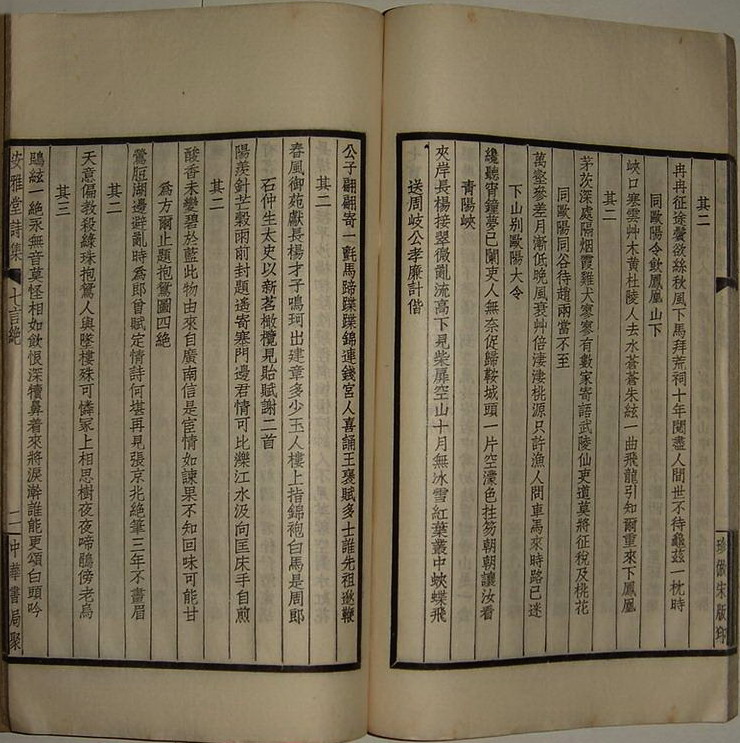 其二
冉冉征途鬢欲絲秋風下馬拜荒祠十年閱盡人間世不待龜茲一枕時
同歐陽令飲鳳凰山下
峽口寒雲艸木黄杜陵人去水蒼蒼朱絃一曲飛龍引知爾重來下鳳凰
其二
茅茨深處隔烟霞雞犬寥寥有數家寄語武陵仙吏道莫將征稅及桃花
同歐陽同谷待趙兩當不至
萬壑參差月漸低晚風衰艸倍淒淒桃源只許漁人問車馬來時路已迷
下山别歐陽大令
纔聽宵鐘夢已闌吏人無奈促歸鞍城頭一片空濛色拄笏朝朝讓汝看
青陽峽
夾岸長楊接翠微亂流高下見柴扉空山十月無冰雪紅葉叢中蛺蝶飛
送周岐公孝廉計偕
珍倣宋版印
公子翩翩寄 氈馬蹄蹀蹀錦連錢宮人喜誦王襃賦多士誰先祖逖鞭
其二
春風御苑獻長楊才子鳴珂出建章多少玉人樓上指錦袍白馬是周郎
石仲生太史以新茗橄欖見貽賦謝二首
陽羨針芒穀雨前封題遙寄塞門邊君情可比灤江水汲向匡床手自煎
其二
酸香未變碧於藍此物由來自廣南信是宦情如諫果不知回味可能甘
為方爾止題抱鴛圖四絶
鶯脰湖邊避亂時為郎曾賦定情詩何堪再見張京兆絶筆三年不畫眉
其二
天意偏教殺綠珠抱鴛人與墜樓殊可憐冢上相思樹夜夜啼鵑傍老烏
其三
鵾絃一絶永無音莫怪相如飲恨深犢鼻着來將淚澣誰能更頌白頭吟
安雅堂詩集 七言絶 二 中華書局聚